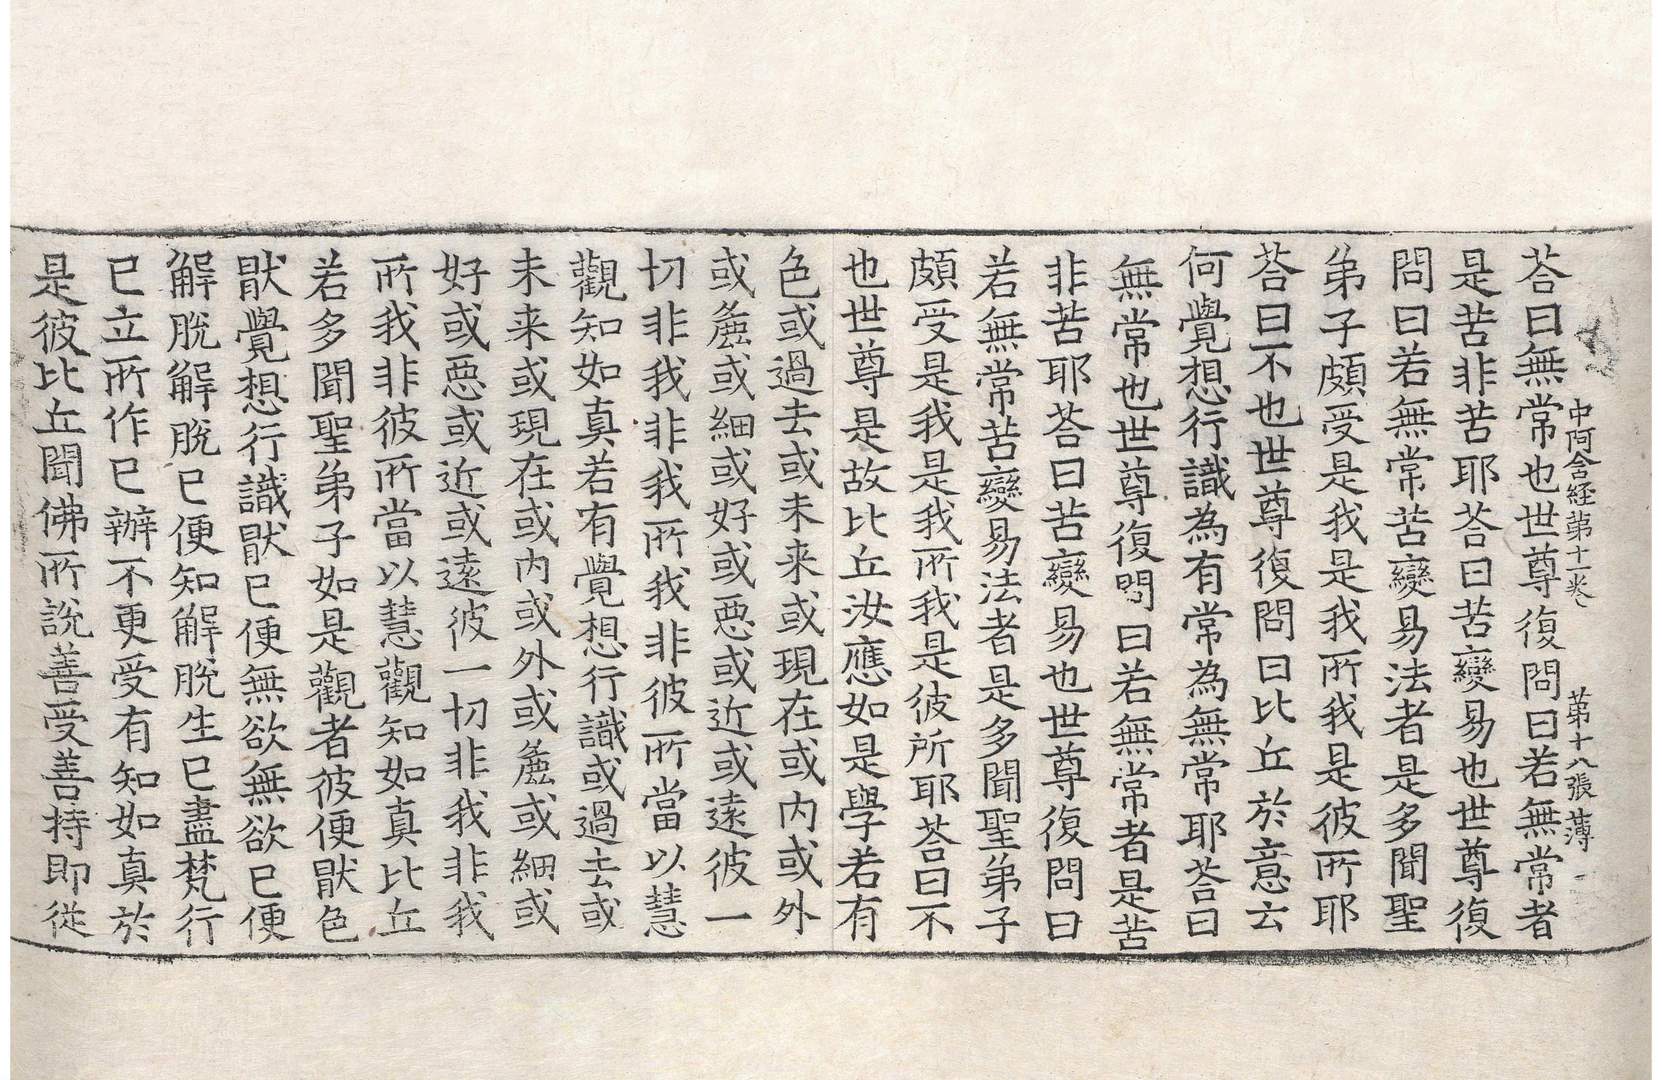 中阿含経第十一卷 第十八張 薄
荅曰無常也世尊復問曰若無常者
是苦非苦耶荅曰苦變易也世尊復
問曰若無常苦變易法者是多聞聖
弟子頗受是我是我所我是彼所耶
荅曰不也世尊復問曰比丘於意云
何覺想行識為有常為無常耶荅曰
無常也世尊復問曰若無常者是苦
非苦耶荅曰苦變易也世尊復問曰
若無常苦變易法者是多聞聖弟子
頗受是我是我所我是彼所耶荅曰不
也世尊是故比丘汝應如是學若有
色或過去或未来或現在或內或外
或麁或細或好或惡或近或遠彼一
切非我非我所我非彼所當以慧
觀知如真若有覺想行識或過去或
未来或現在或內或外或麁或細或
好或惡或近或遠彼一切非我非我
所我非彼所當以慧觀知如真比丘
若多聞聖弟子如是觀者彼便猒色
猒覺想行識猒已便無欲無欲已便
解脫解脫已便知解脫生已盡梵行
已立所作已辦不更受有知如真於
是彼比丘聞佛所說善受善持即從